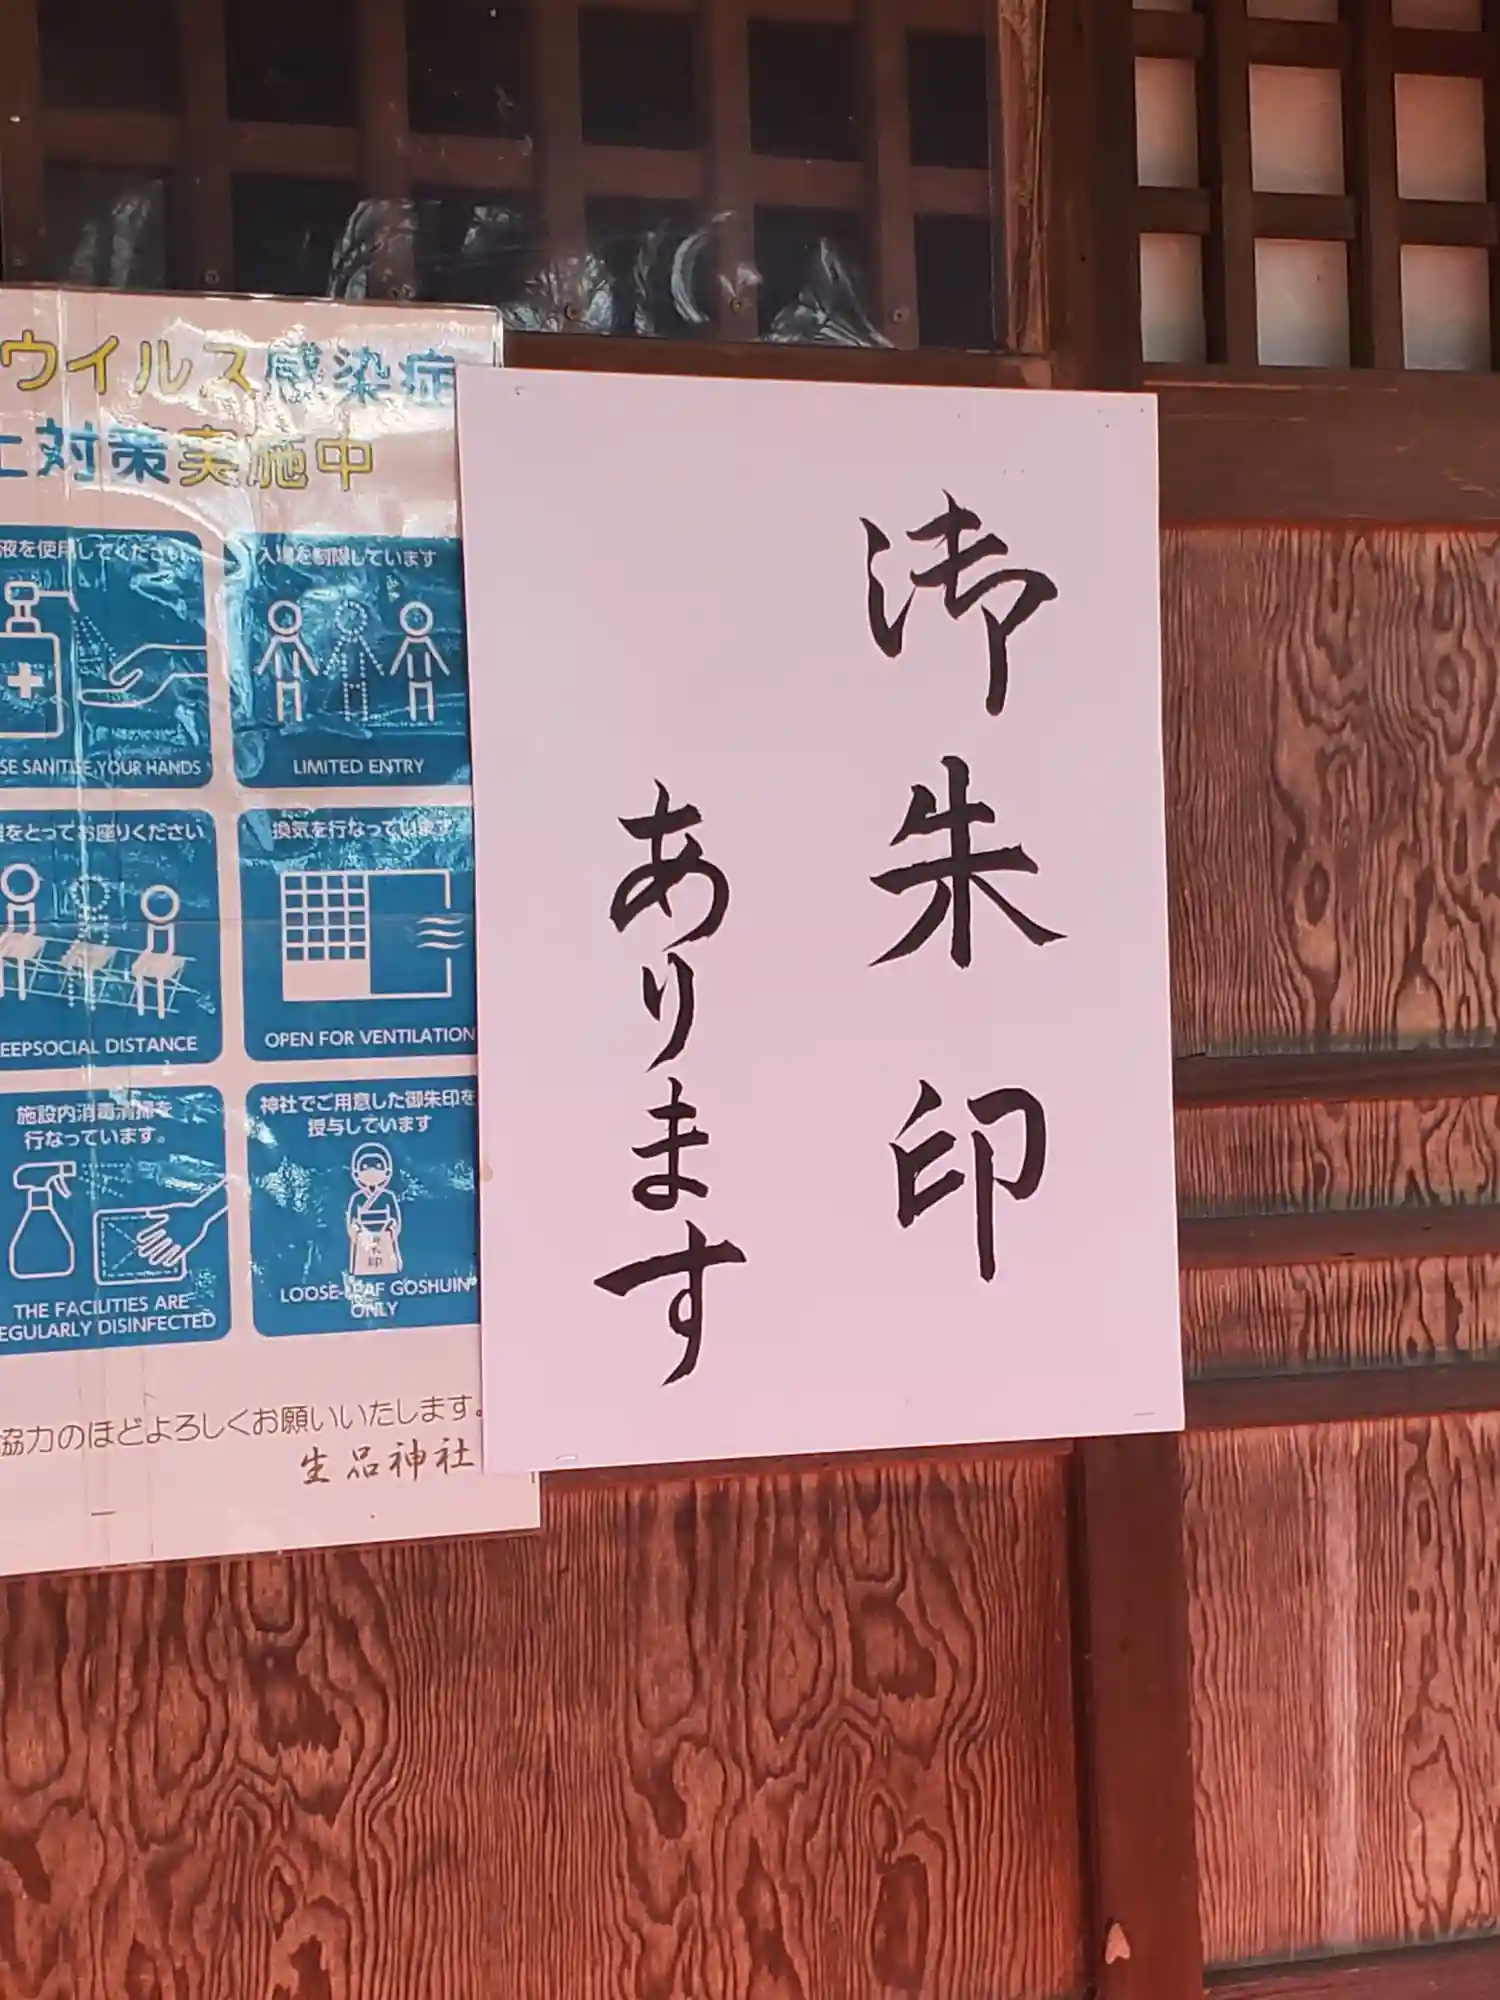 ウイルス感染症
対策実施中
液を使用してください
SE SANITISE YOUR HANDS
入場を制限しています
LIMITED ENTRY
をとってお座りください
EEPSOCIAL DISTANCE
換気を行なっています
OPEN FOR VENTILATION
施設内消毒清掃を
行なっています。
THE FACILITIES ARE
EGULARLY DISINFECTED
神社でご用意した御朱印を
授与しています
LOOSE-LEAF GOSHUIN
ONLY
協力のほどよろしくお願いいたします。
生品神社
御朱印
あります